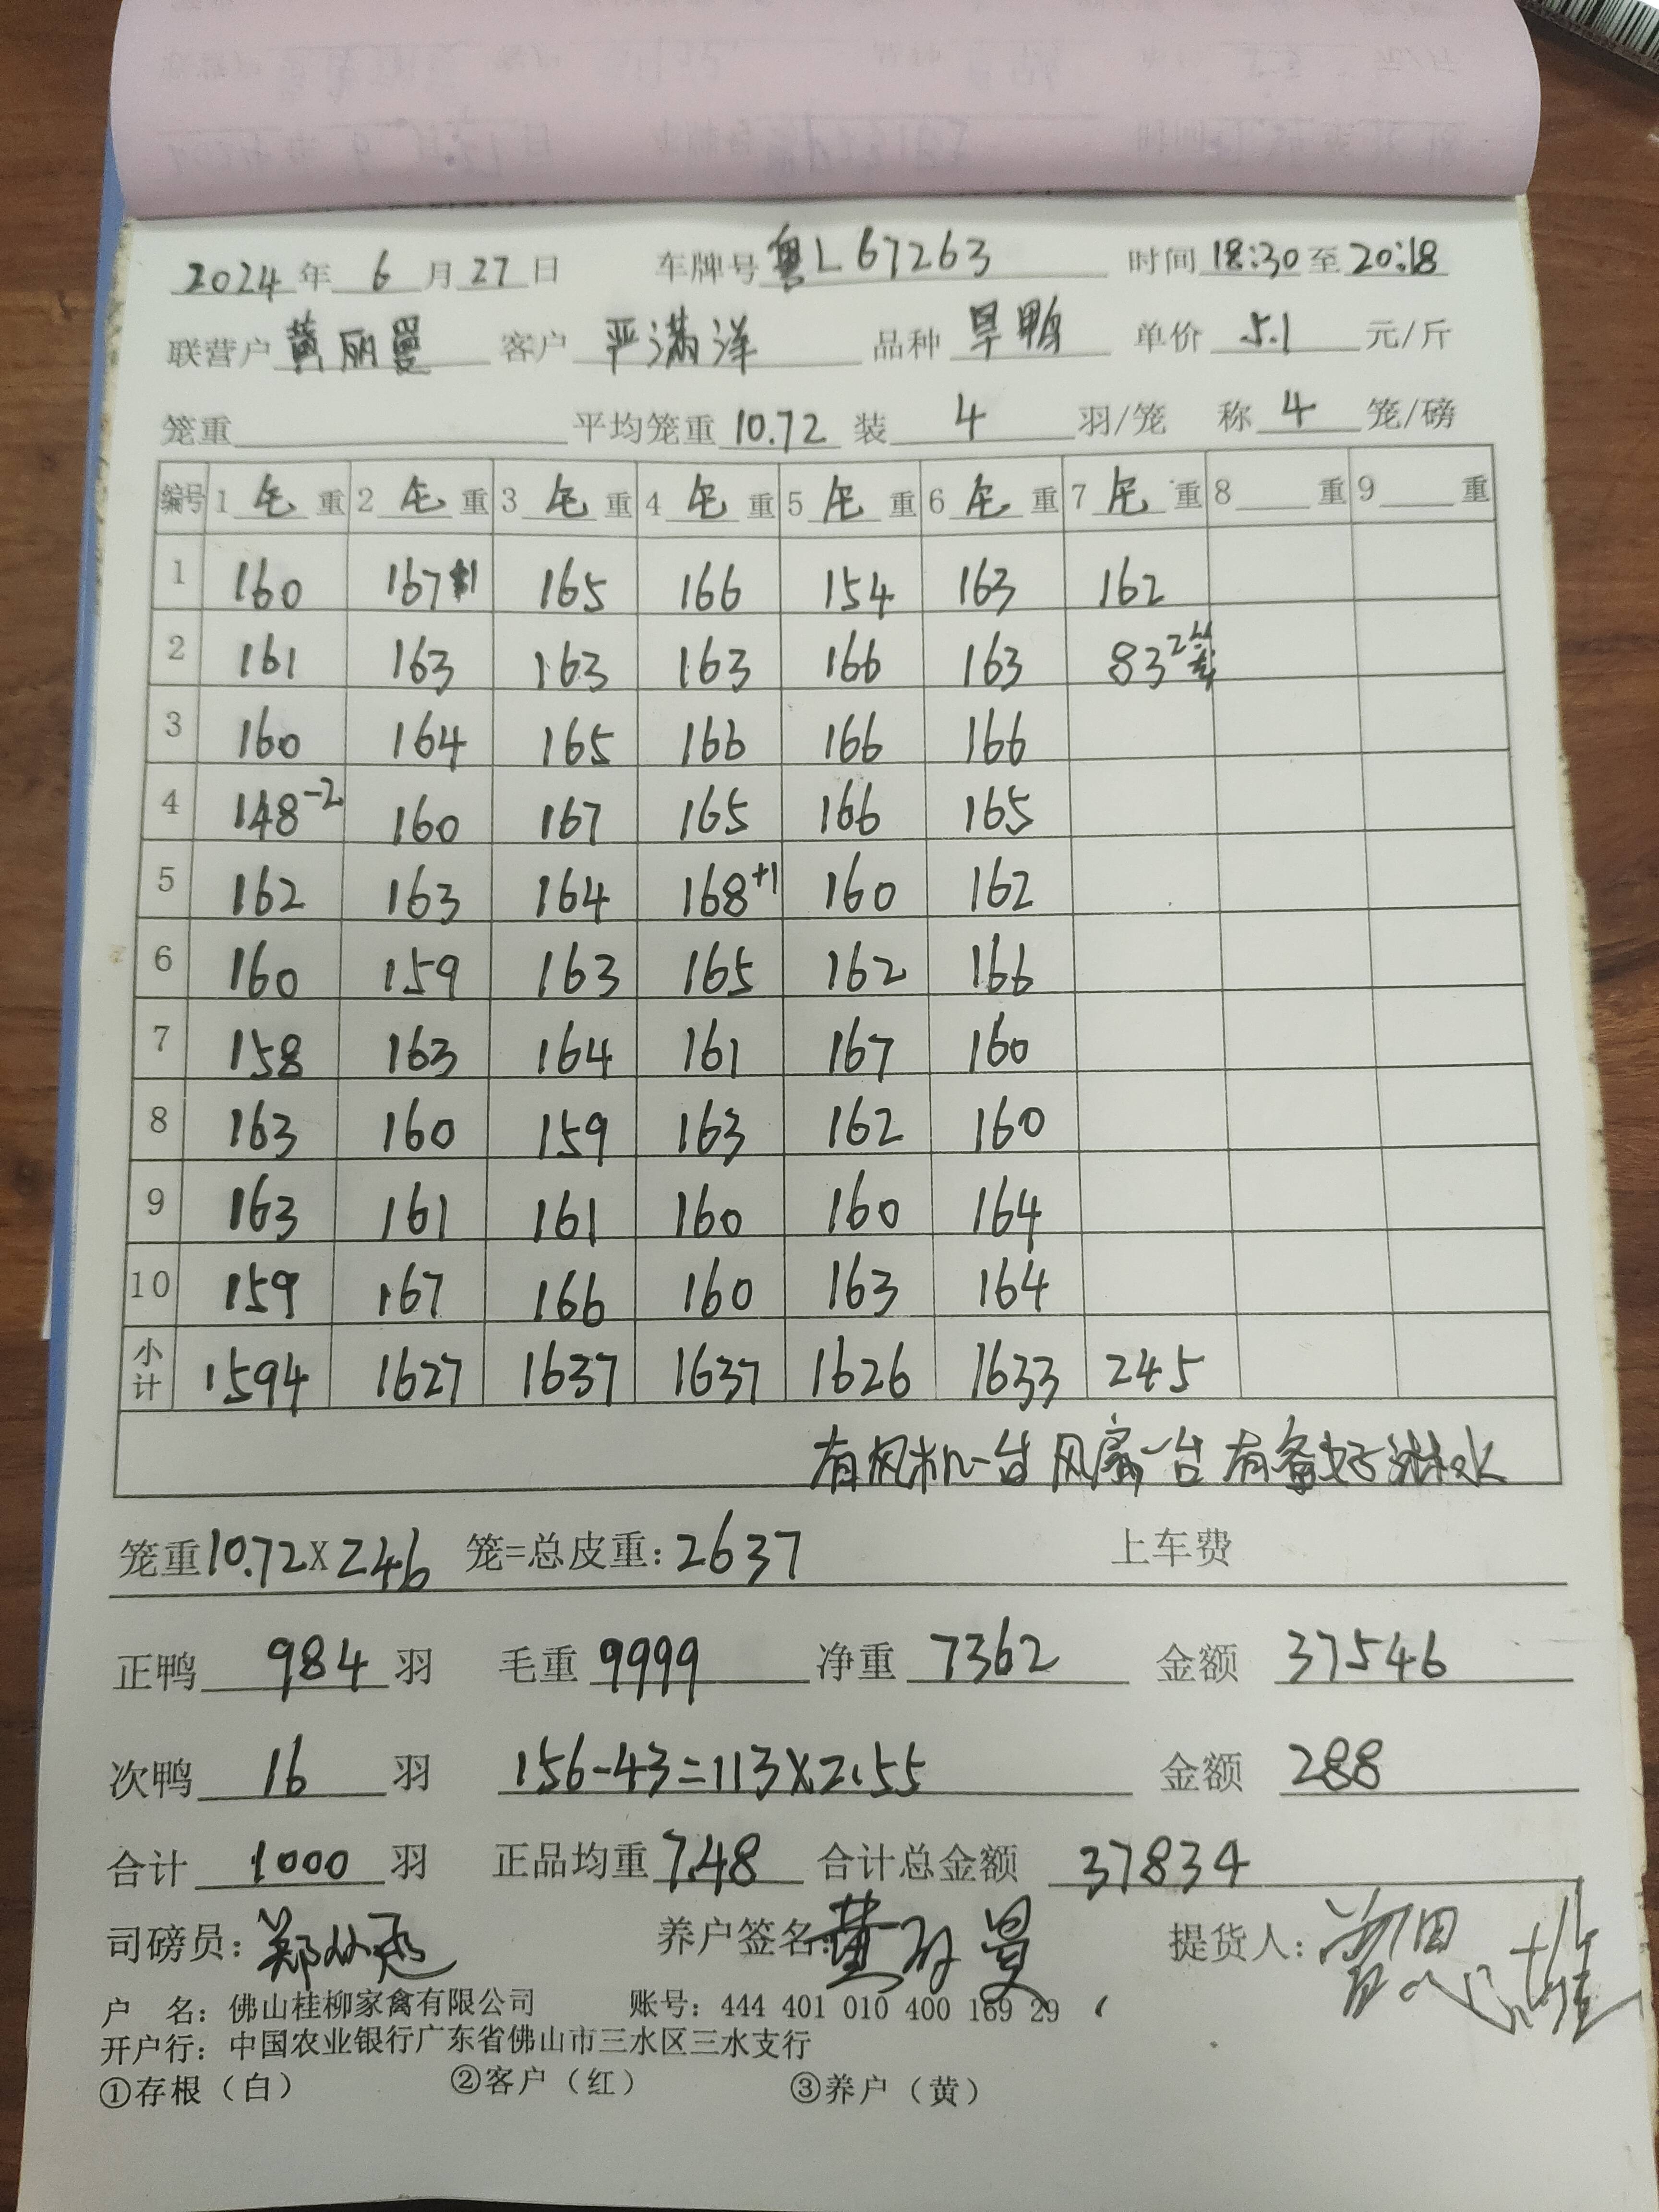 2024 年 6 月 27 日 车牌号 粤L67263 时间 18:30 至 20:18
联营户 黄丽曼 客户 严满洋 品种 旱鸭 单价 5.1 元/斤
笼重 平均笼重 10.72 装 4 羽/笼 称 4 笼/磅
编号 1 毛 重 2 毛 重 3 毛 重 4 毛 重 5 毛 重 6 毛 重 7 毛 重 8 重 9 重
1 160 167 +1 165 166 154 163 162
2 161 163 163 163 166 163 83 2笼
3 160 164 165 166 166 166
4 148 -2 160 167 165 166 165
5 162 163 164 168 +1 160 162
6 160 159 163 165 162 166
7 158 163 164 161 167 160
8 163 160 159 163 162 160
9 163 161 161 160 160 164
10 159 167 166 160 163 164
小计 1594 1627 1637 1637 1626 1633 245
有风机一台 风扇一台 有备好淋水
笼重 10.72 X 246 笼=总皮重: 2637 上车费
正鸭 984 羽 毛重 9999 净重 7362 金额 37546
次鸭 16 羽 156-43=113X2.55 金额 288
合计 1000 羽 正品均重 7.48 合计总金额 37834
司磅员: 养户签名: 黄丽曼 提货人:
户 名: 佛山桂柳家禽有限公司 账号: 444 401 010 400 169 29
开户行: 中国农业银行广东省佛山市三水区三水支行
①存根（白） ②客户（红） ③养户（黄）